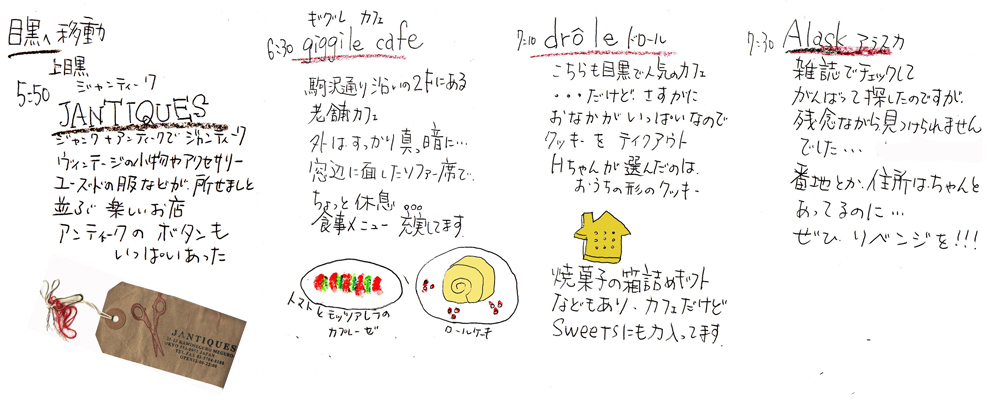 目黒へ移動
上目黒
5:50 ジャンティーク
JANTIQUES
ジャンク+アンティークでジャンティーク
ヴィンテージの小物やアクセサリー
ユーズドの服などが所せましと
並ぶ楽しいお店
アンティークのボタンも
いっぱいあった
JANTIQUES
ギグル カフェ
6:30 giggile cafe
駒沢通り沿いの2Fにある
老舗カフェ
外はすっかり真っ暗に…
窓辺に面したソファー席で、
ちょっと休息。。。
食事メニュー充実してます。
トマトとモッツァレラの
カプレーゼ
ロールケーキ
7:10 drôle ドロール
こちらも目黒で人気のカフェ
・・・だけど、さすがに
おなかがいっぱいなので
クッキーをテイクアウト
Hちゃんが選んだのは、
おうちの形のクッキー
焼菓子の箱詰めギフト
などもあり、カフェだけど
Sweetsにも力入ってます。
7:30 Alask アラスカ
雑誌でチェックして
がんばって探したのですが、
残念ながら見つけられません
でした・・・
番地とか、住所はちゃんと
あってるのに…
ぜひ、リベンジを!!!